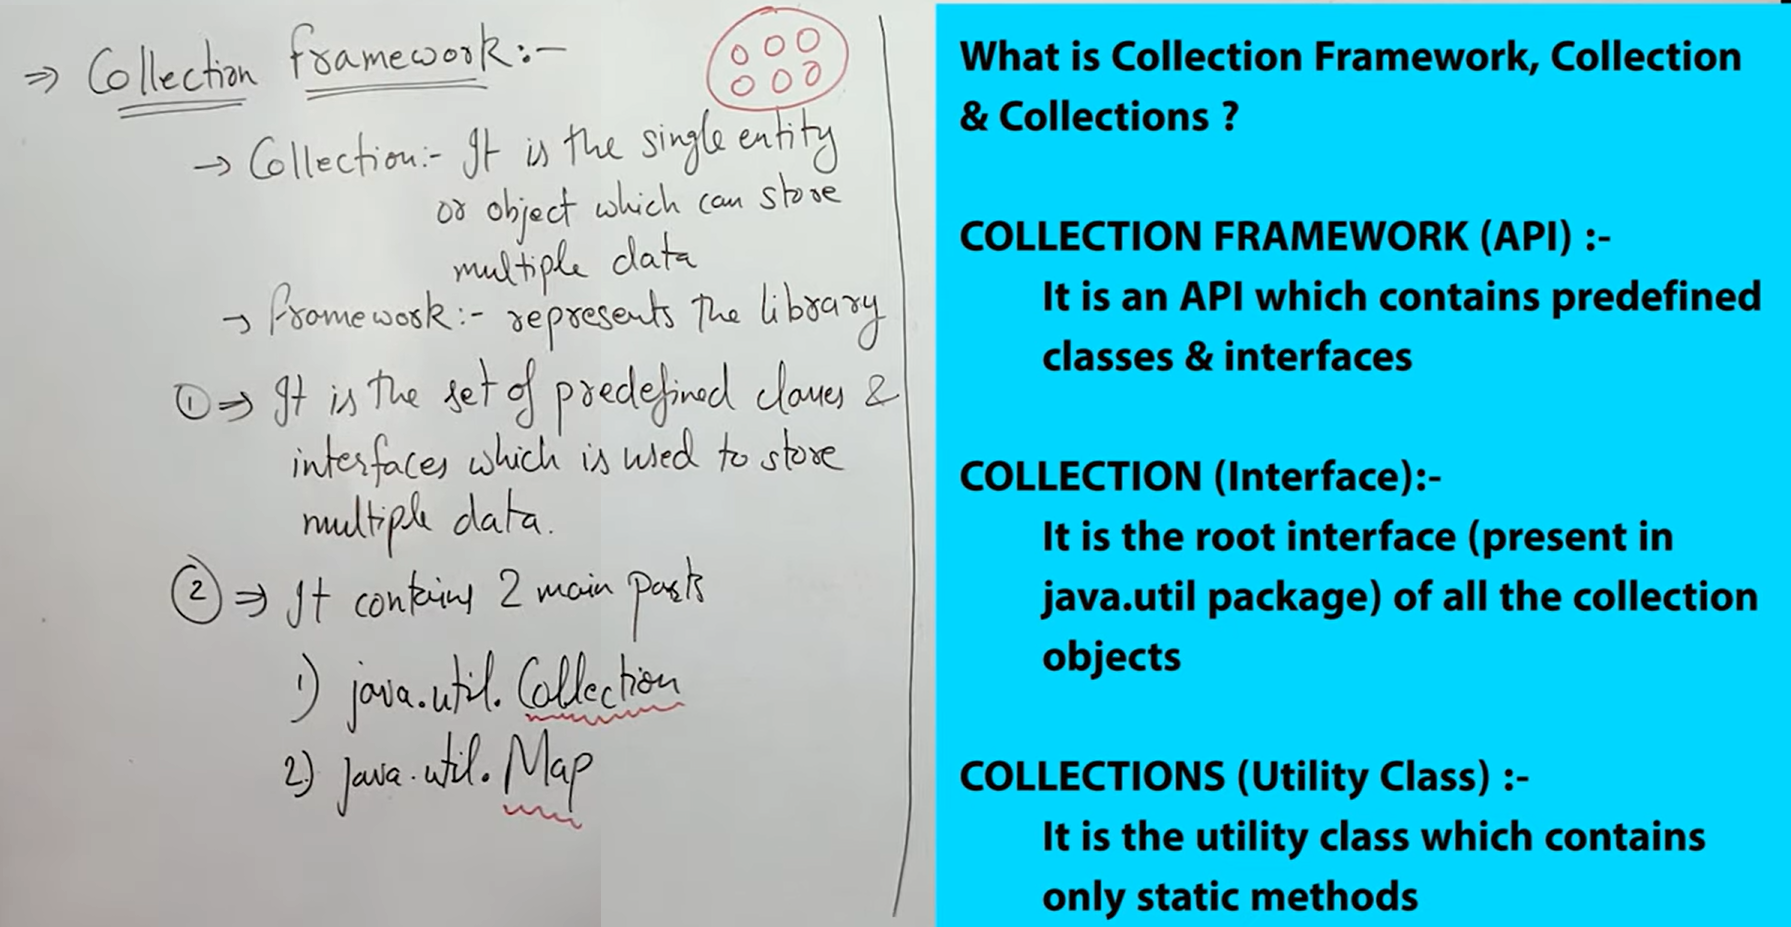 ⇒ Collection framework:-
→ Collection:- It is the single entity
or object which can store
multiple data
→ framework:- represents the library
① ⇒ It is the set of predefined classes &
interfaces which is used to store
multiple data.
② ⇒ It contains 2 main parts
1) java.util.Collection
2) java.util.Map
What is Collection Framework, Collection
& Collections ?
COLLECTION FRAMEWORK (API) :-
It is an API which contains predefined
classes & interfaces
COLLECTION (Interface):-
It is the root interface (present in
java.util package) of all the collection
objects
COLLECTIONS (Utility Class) :-
It is the utility class which contains
only static methods